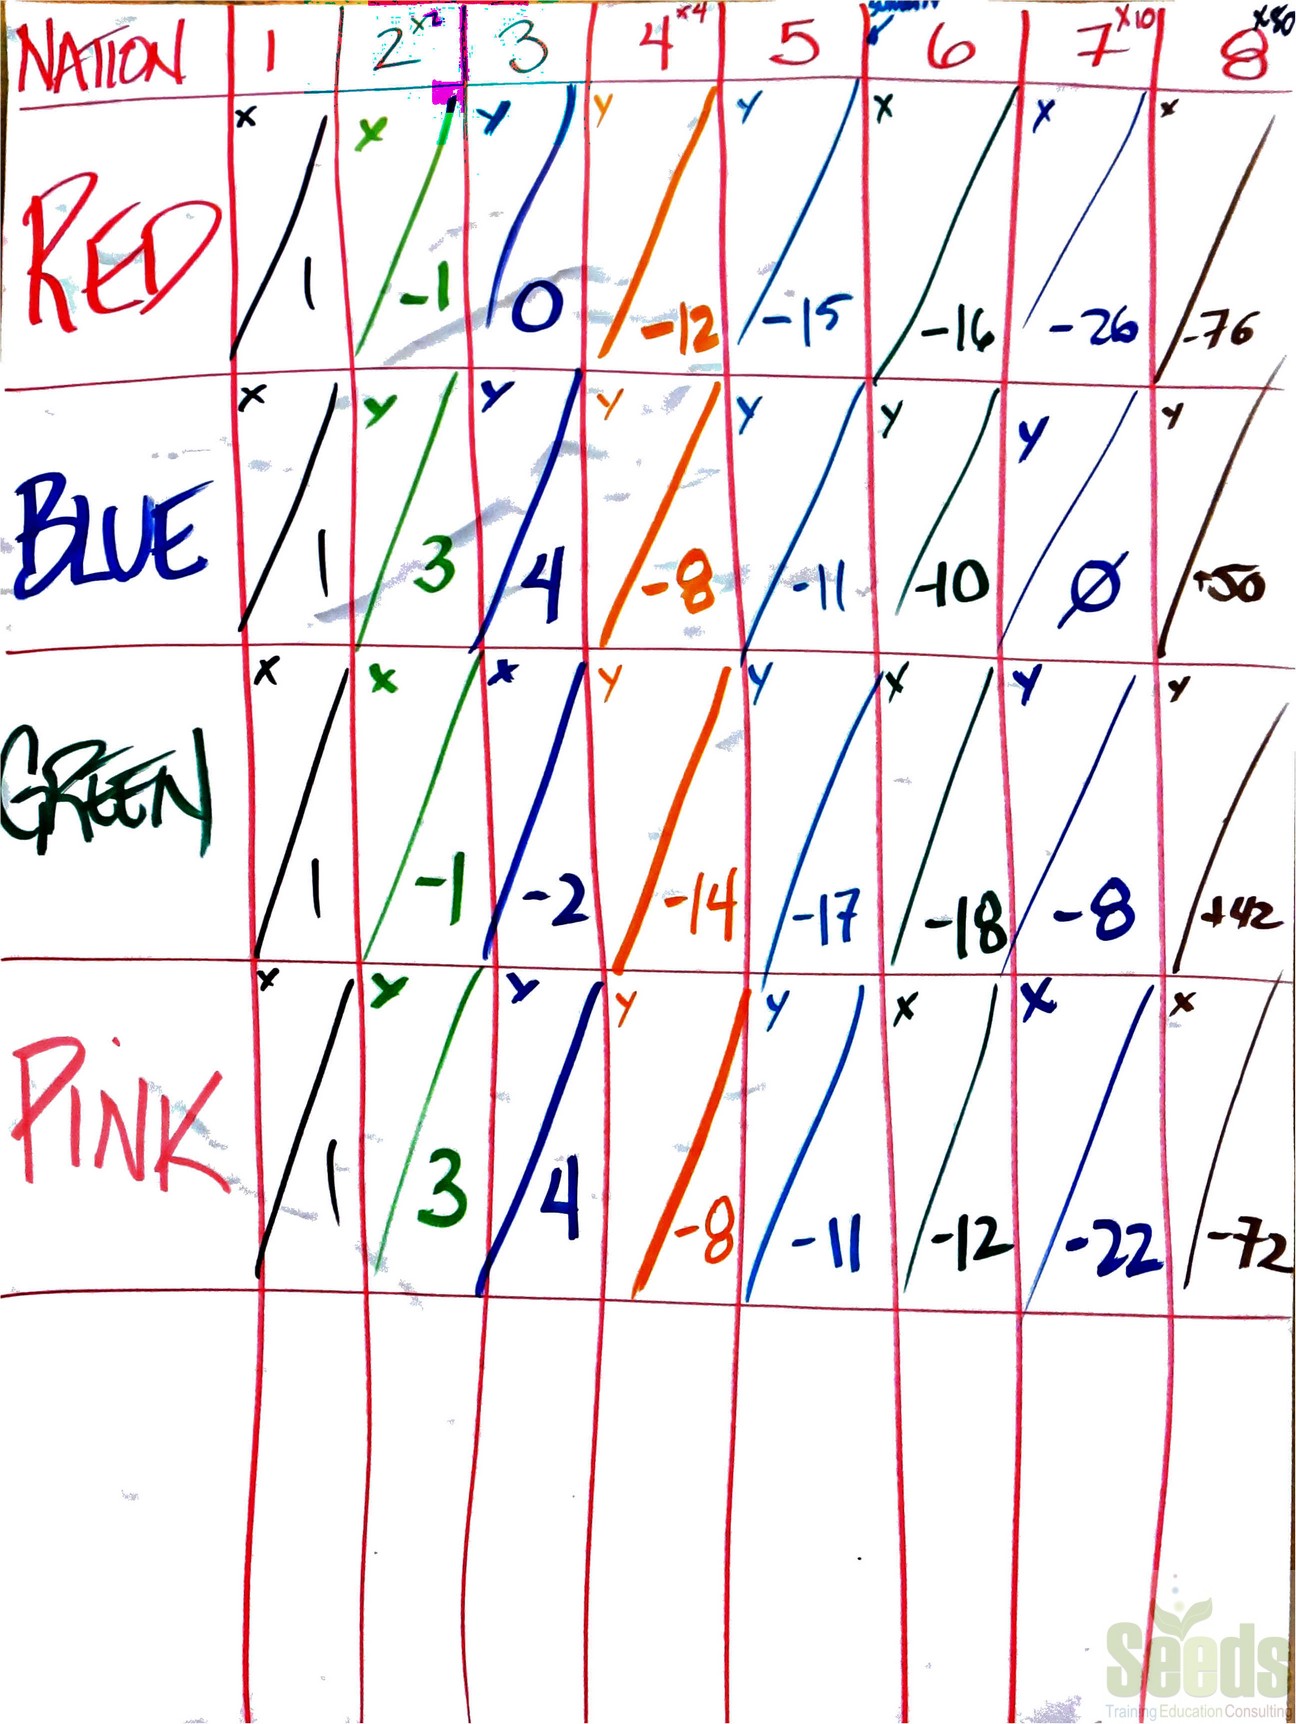 NATION 1 2 x2 3 4 x4 5 6 7 x10 8 x50
RED X 1 X -1 Y 0 Y -12 Y -15 X -16 X -26 X -76
BLUE X 1 Y 3 Y 4 Y -8 Y -11 Y -10 Y Ø Y +50
GREEN X 1 X -1 X -2 Y -14 Y -17 X -18 Y -8 Y +42
PINK X 1 Y 3 Y 4 Y -8 Y -11 X -12 X -22 X -72
Seeds
Training Education Consulting